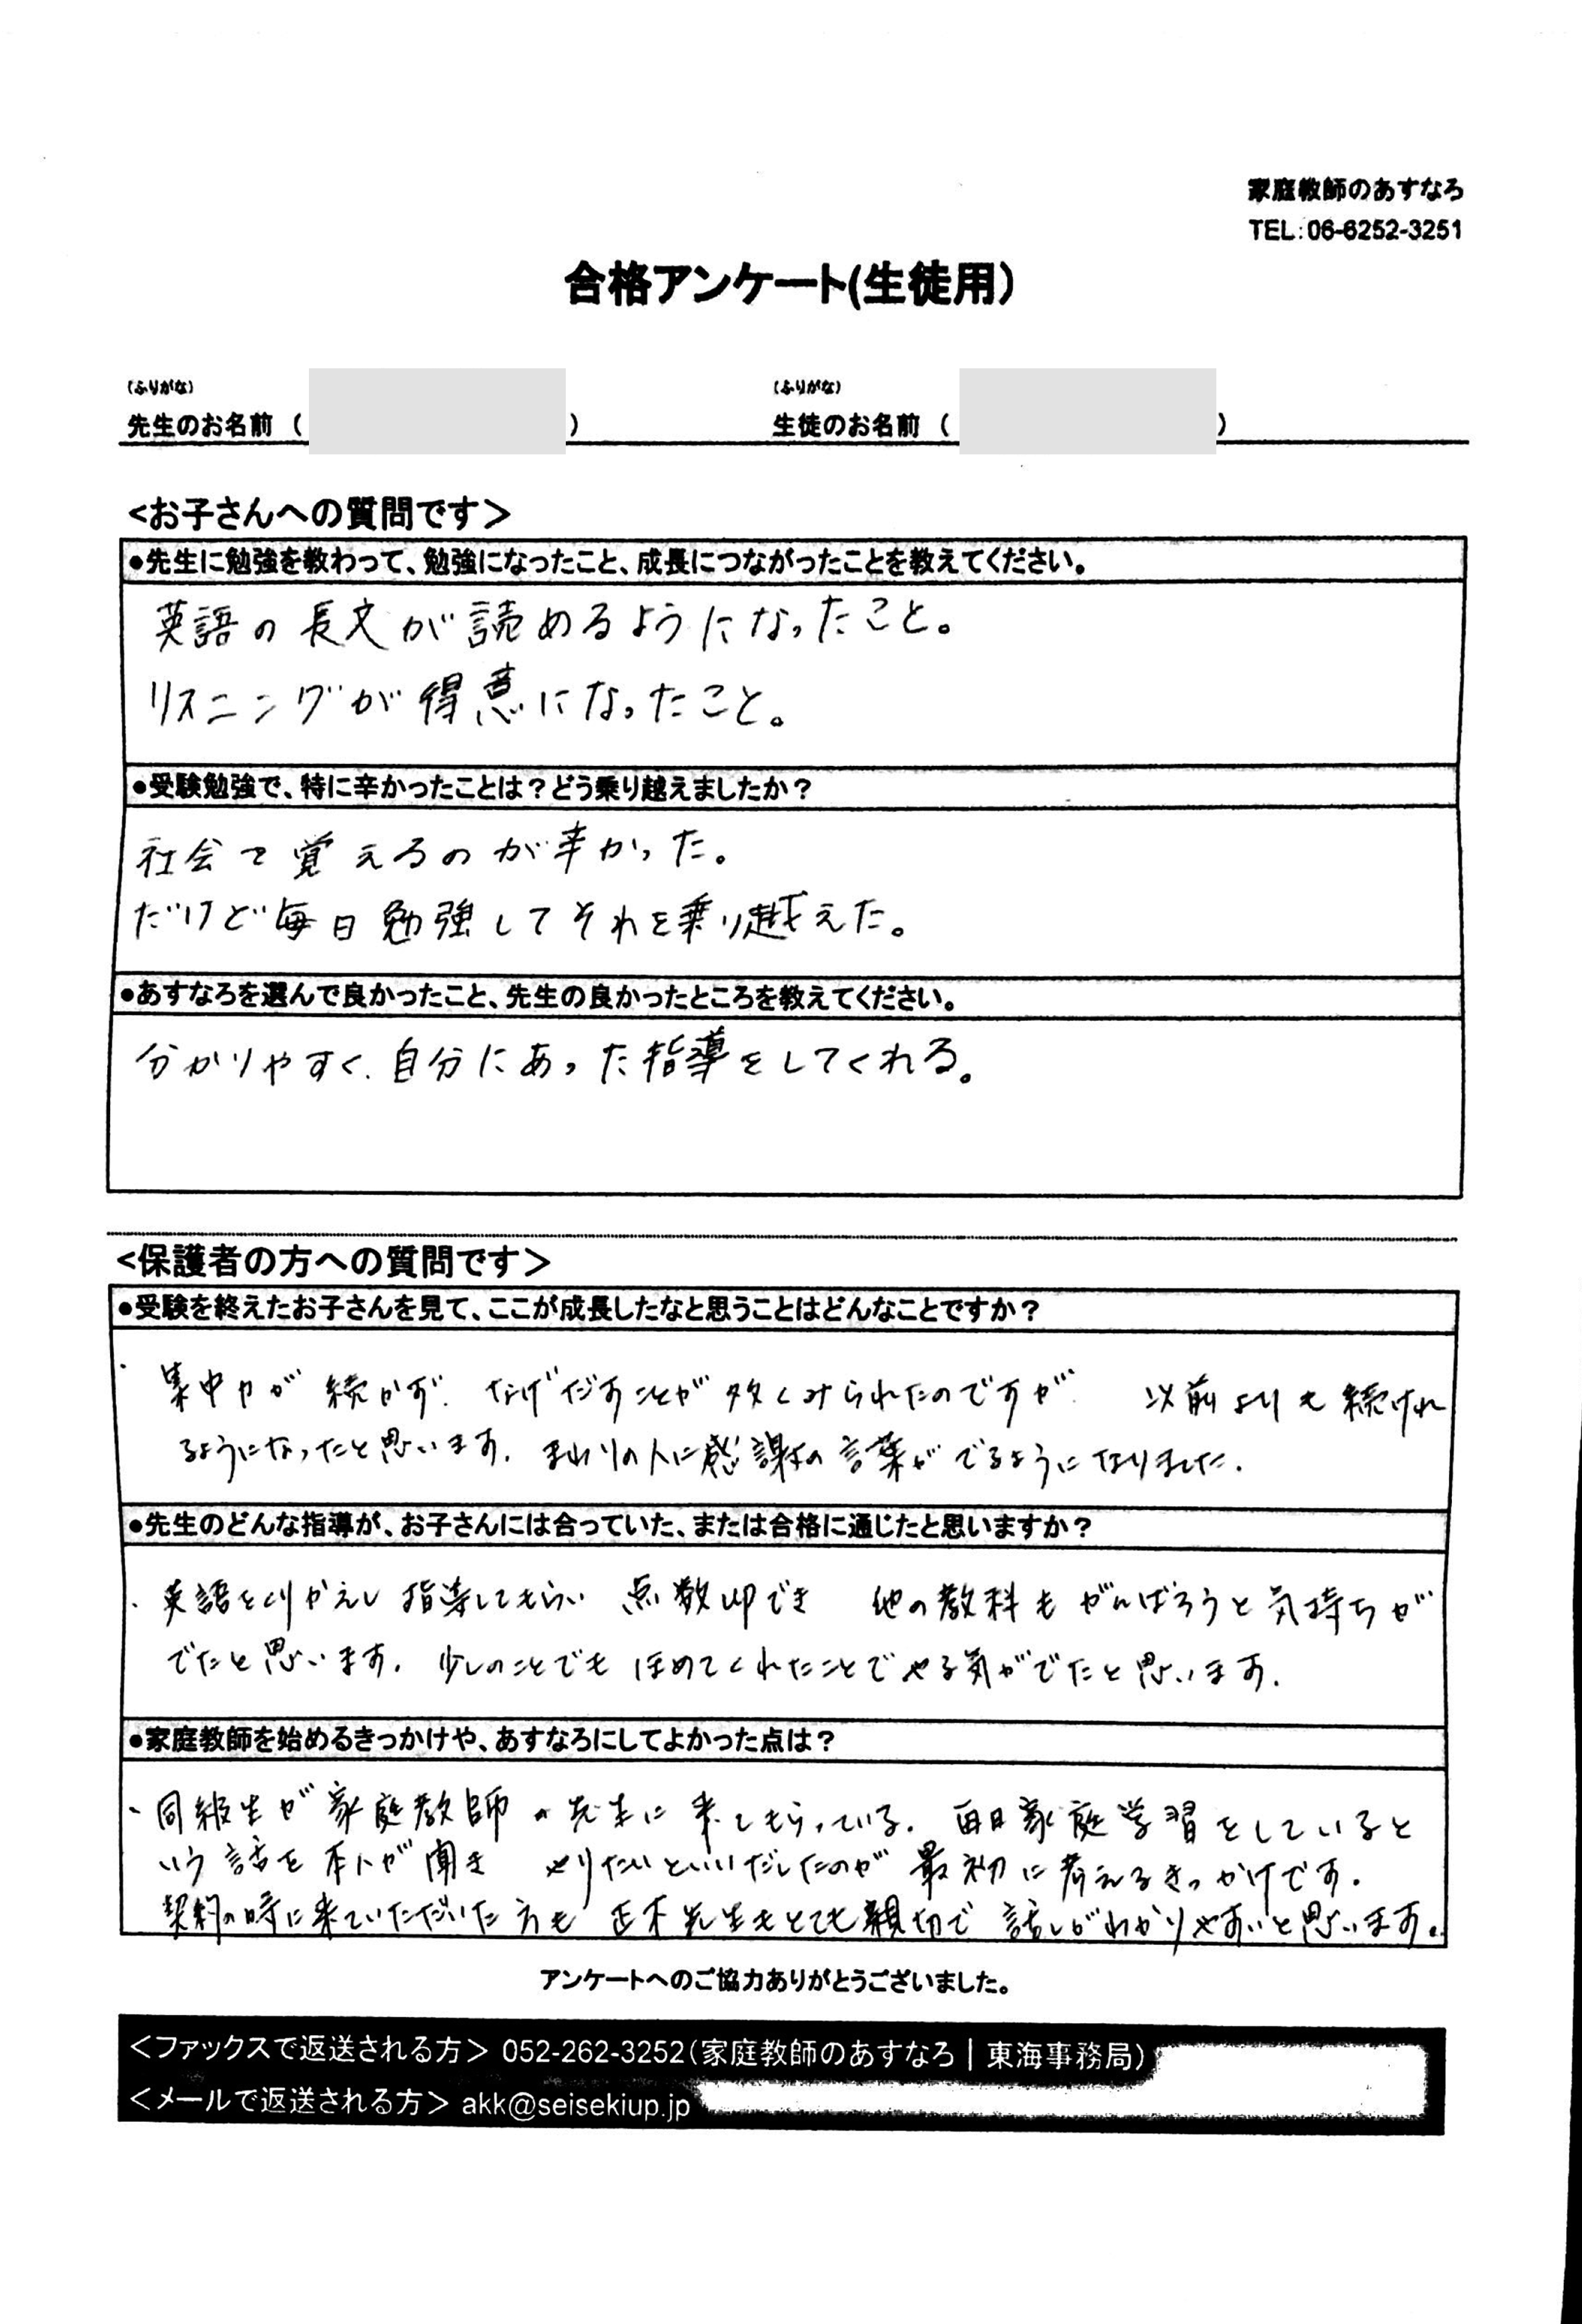 家庭教師のあすなろ
TEL:06-6252-3251
合格アンケート(生徒用)
(ふりがな) (ふりがな)
先生のお名前 ( ) 生徒のお名前 ( )
<お子さんへの質問です>
●先生に勉強を教わって、勉強になったこと、成長につながったことを教えてください。
英語の長文が読めるようになったこと。
リスニングが得意になったこと。
●受験勉強で、特に辛かったことは?どう乗り越えましたか?
社会で覚えるのが辛かった。
だけど毎日勉強してそれを乗り越えた。
●あすなろを選んで良かったこと、先生の良かったところを教えてください。
分かりやすく、自分にあった指導をしてくれる。
<保護者の方への質問です>
●受験を終えたお子さんを見て、ここが成長したなと思うことはどんなことですか?
・集中力が続かず、なげだすことが多くみられたのですが、以前よりも続けれ
るようになったと思います。まわりの人に感謝の言葉がでるようになりました。
●先生のどんな指導が、お子さんには合っていた、または合格に通じたと思いますか?
・英語をくりかえし指導してもらい 点数UPでき 他の教科もがんばろうと気持ちが
でたと思います。少しのことでもほめてくれたことでやる気がでたと思います。
●家庭教師を始めるきっかけや、あすなろにしてよかった点は?
・同級生が家庭教師の先生に来てもらっている。毎日家庭学習をしていると
いう話を本人が聞き やりたいといいだしたのが最初に考えるきっかけです。
契約の時に来ていただいた方も 正木先生もとても親切で 話しがわかりやすいと思います。
アンケートへのご協力ありがとうございました。
<ファックスで返送される方> 052-262-3252(家庭教師のあすなろ | 東海事務局)
<メールで返送される方> akk@seisekiup.jp